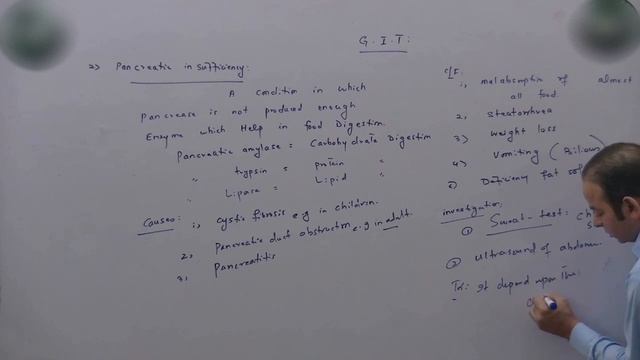 G.I.T:
2) Pancreatic insufficiency:
A condition in which
pancrease is not produced enough
Enzyme which Help in food Digestim.
Pancreatic amylase = Carbohydrate Digestim
" trypsin = protein "
" Lipase = Lipid "
Causes: 1, cystic fibrosis e.g in children.
2, Pancreatic duct obstructm e.g in adult.
3, Pancreatitis
C/F:
1, malabsorptin of almost
all food.
2, Steatorrhea
3) weight loss
4) Vomiting (Bilious)
5) Deficiency fat
investigation;
① Sweat-test:
② ultrasound of abdomen.
Tx: It depend upon